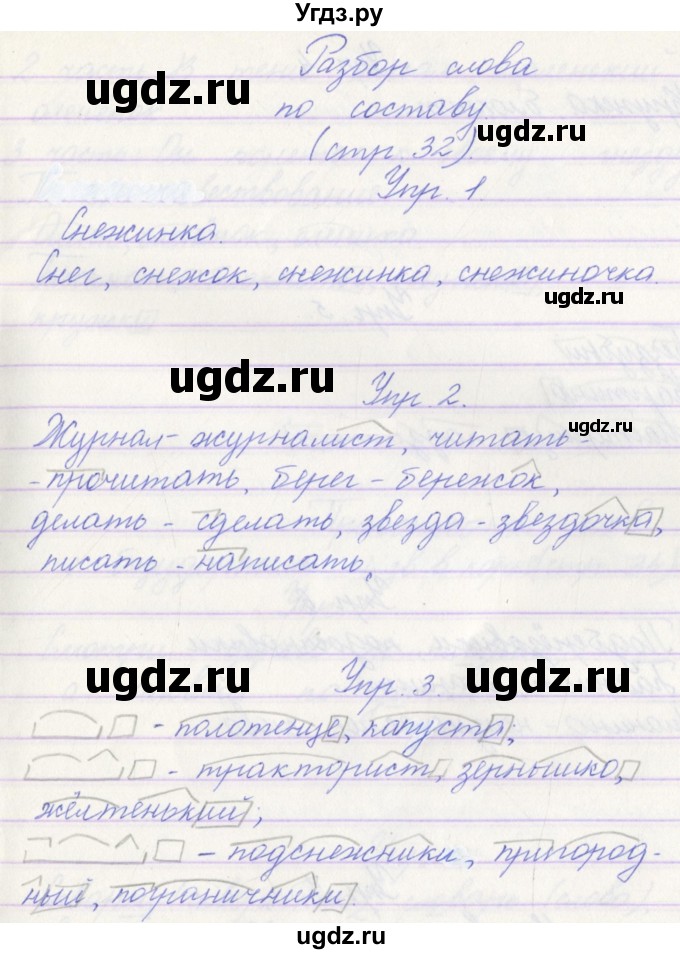 Угдз.ру
Разбор слова
ugdz.ru
по составу.
ugdz.ru
(стр. 32).
Упр. 1.
Снежинка.
Снег, снежок, снежинка, снежиночка.
ugdz.ru
ugdz.ru
Упр. 2.
ugdz.ru
Журнал - журналист, читать -
- прочитать, берег - бережок,
делать - сделать, звезда - звездочка,
писать - написать.
ugdz.ru
Упр. 3.
ugdz.ru
- полотенце, капуста;
- тракторист, зернышко,
жёлтенький;
- подснежники, пригород-
ный, пограничники.
ugdz.ru